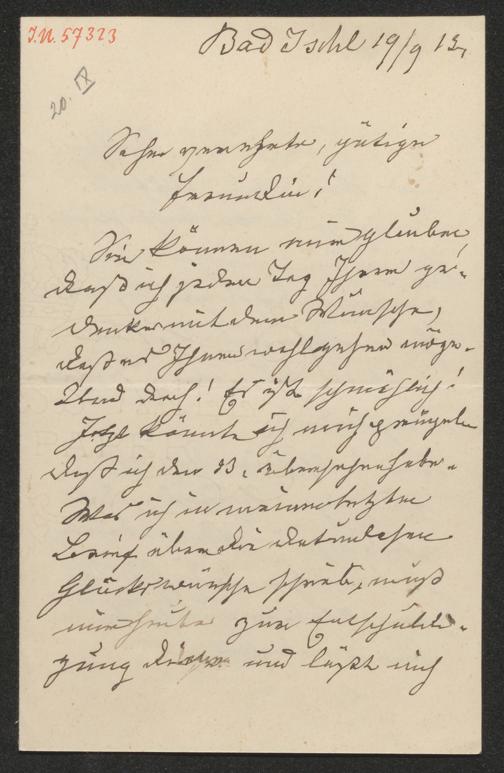 I.N. 57323
Bad Ischl 19/9 13.
20. IX
Sehr verehrte, gütige
Freundin!
Sie können mir glauben,
daß ich jeden Tag Ihrer ge-
denke mit dem Wunsche,
daß es Ihnen wohlgehen möge.
Und doch! Es ist schmählich!
Jetzt könnte ich mich prügeln
daß ich den 13. übersehen habe.
Was ich in meinem letzten
Brief über die
Glückswünsche schrieb, muß
mir heute zur Entschuldi-
gung dienen und läßt mich